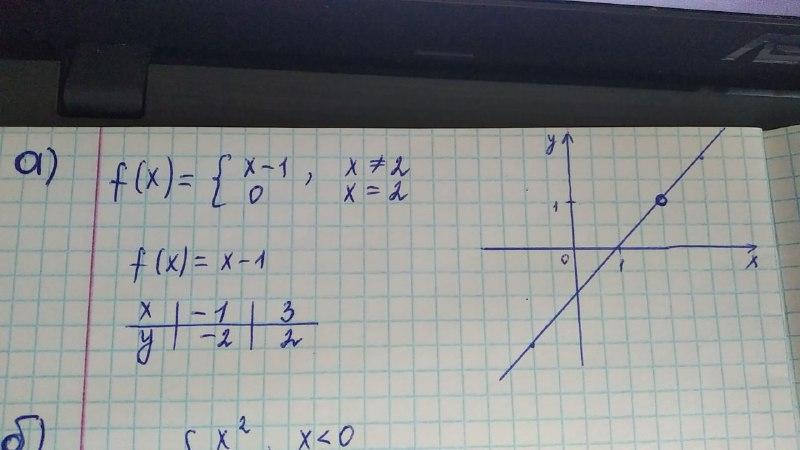 а)
f(x) = { x-1, x ≠ 2
0 x = 2
f(x) = x-1
x | -1 | 3
y | -2 | 2
y
1
0
1
x
б)
{ x², x<0